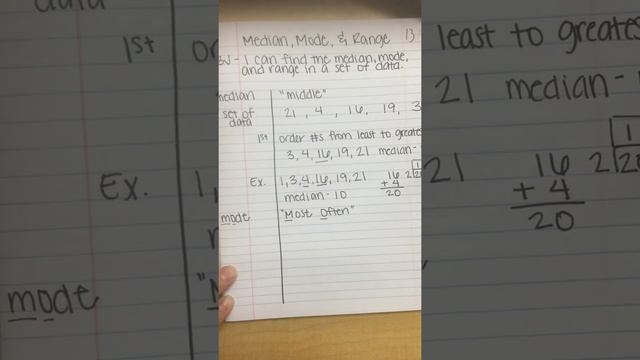 Median, Mode, & Range 13
BW - I can find the median, mode,
and range in a set of data.
median "middle"
set of data 21, 4, 16, 19, 3
1st order #s from least to greates
3, 4, 16, 19, 21 median-
Ex. 1, 3, 4, 16, 19, 21 16 2
median - 10 + 4
20
mode "Most Often"
1st
Ex.
mode
least to greates
21 median-
21 16 2
+ 4
20